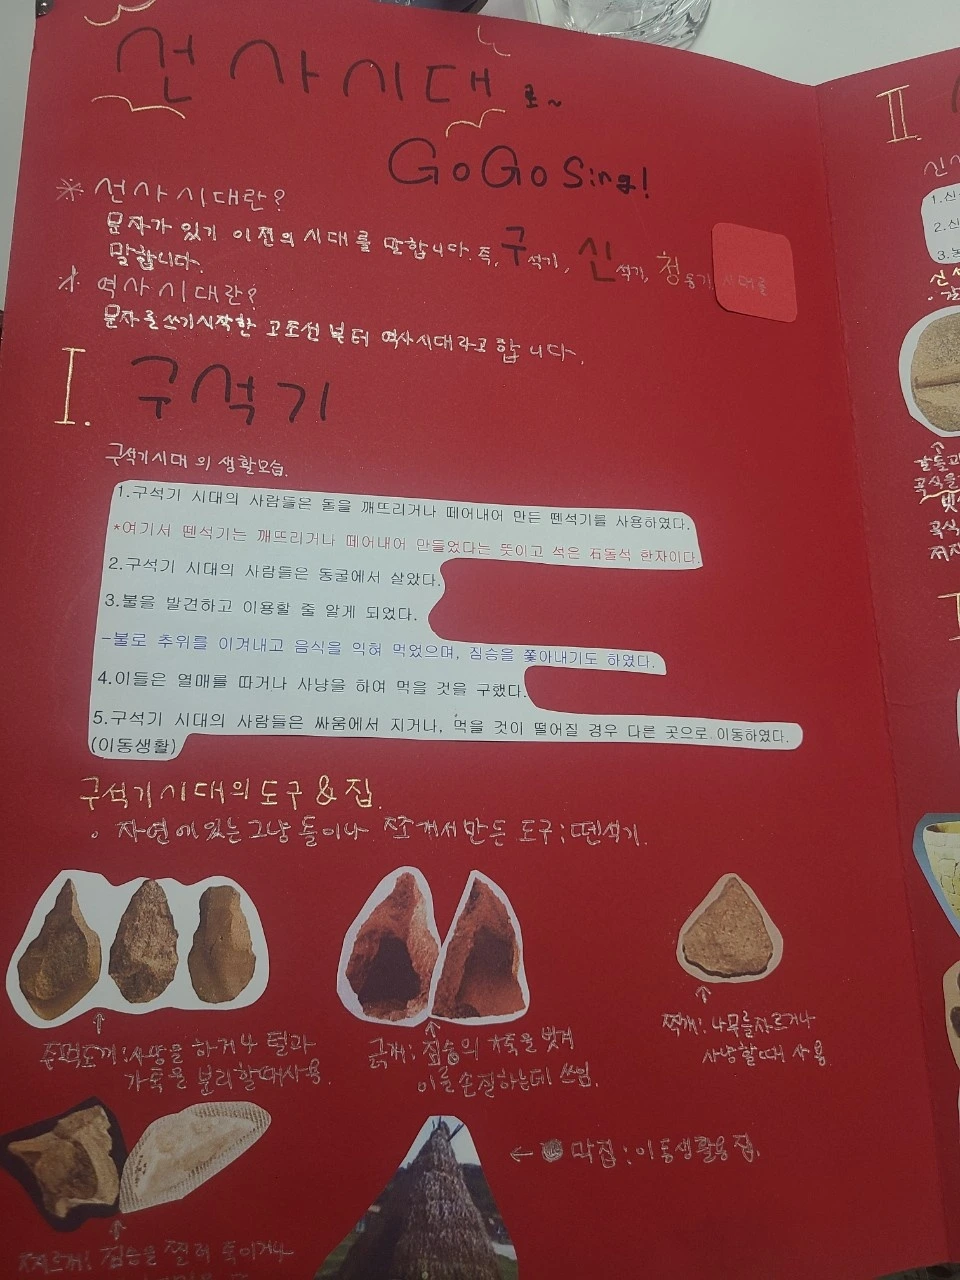 선사시대로~
GoGo Sing!
※ 선사시대란?
문자가 있기 이전의 시대를 말합니다. 즉, 구석기, 신석기, 청동기 시대를
말합니다.
역사시대란?
문자를 쓰기시작한 고조선부터 역사시대라고 합니다.
I. 구석기
구석기시대의 생활모습.
1.구석기 시대의 사람들은 돌을 깨뜨리거나 떼어내어 만든 뗀석기를 사용하였다.
*여기서 뗀석기는 깨뜨리거나 떼어내어 만들었다는 뜻이고 석은 石돌석 한자이다.
2.구석기 시대의 사람들은 동굴에서 살았다.
3.불을 발견하고 이용할 줄 알게 되었다.
-불로 추위를 이겨내고 음식을 익혀 먹었으며, 짐승을 쫓아내기도 하였다.
4.이들은 열매를 따거나 사냥을 하여 먹을 것을 구했다.
5.구석기 시대의 사람들은 싸움에서 지거나, 먹을 것이 떨어질 경우 다른 곳으로 이동하였다.
(이동생활)
구석기시대의 도구 & 집.
자연에 있는 그냥 돌이나 쪼개서 만든 도구: 뗀석기.
주먹도끼: 사냥을 하거나 털과
가죽을 분리할때 사용.
긁개: 짐승의 가죽을 벗겨
이를 손질하는데 쓰임.
찍개: 나무를 자르거나
사냥할때 사용
← 막집: 이동생활용 집.
찌르개: 짐승을 찔러 죽이거나
II.
1.신
2.신
3.농